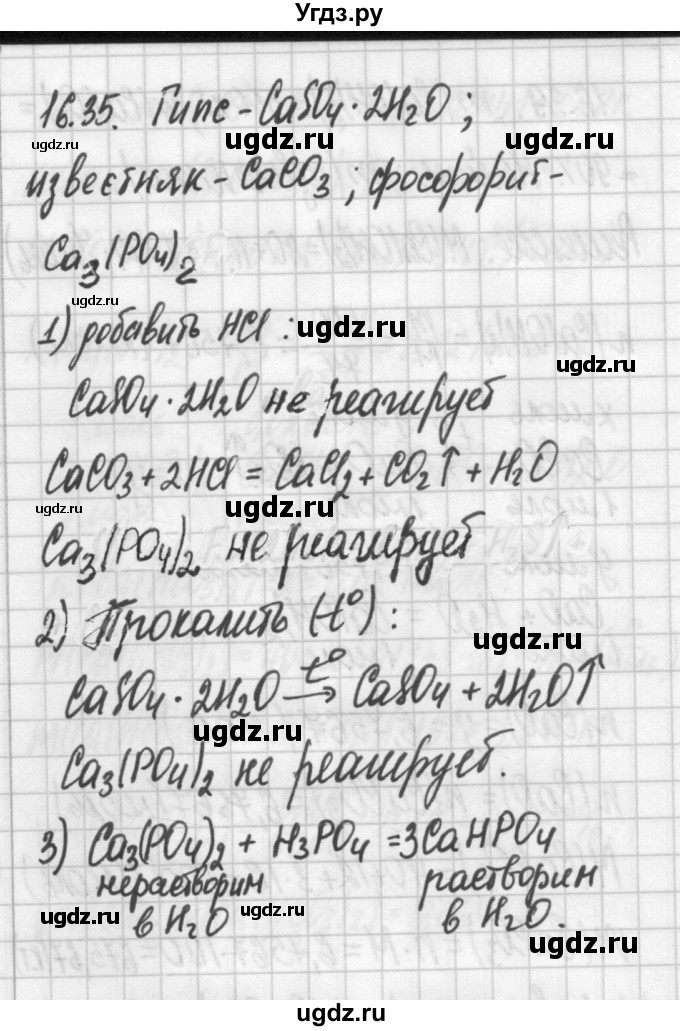 Угдз.ру
16.35. Гипс - CaSO4 · 2H2O ;
ugdz.ru ugdz.ru ugdz.ru
известняк - CaCO3 ; фосфорит -
Ca3(PO4)2
ugdz.ru
1) добавить HCl :
ugdz.ru
ugdz.ru
CaSO4 · 2H2O не реагирует
CaCO3 + 2HCl = CaCl2 + CO2↑ + H2O
ugdz.ru ugdz.ru ugdz.ru
Ca3(PO4)2 не реагирует
2) Прокалить (t°) :
ugdz.ru ugdz.ru
CaSO4 · 2H2O t°→ CaSO4 + 2H2O↑
ugdz.ru ugdz.ru
Ca3(PO4)2 не реагирует.
ugdz.ru
3) Ca3(PO4)2 + H3PO4 = 3CaHPO4
нерастворим растворим
в H2O в H2O.
ugdz.ru ugdz.ru
ugdz.ru
ugdz.ru